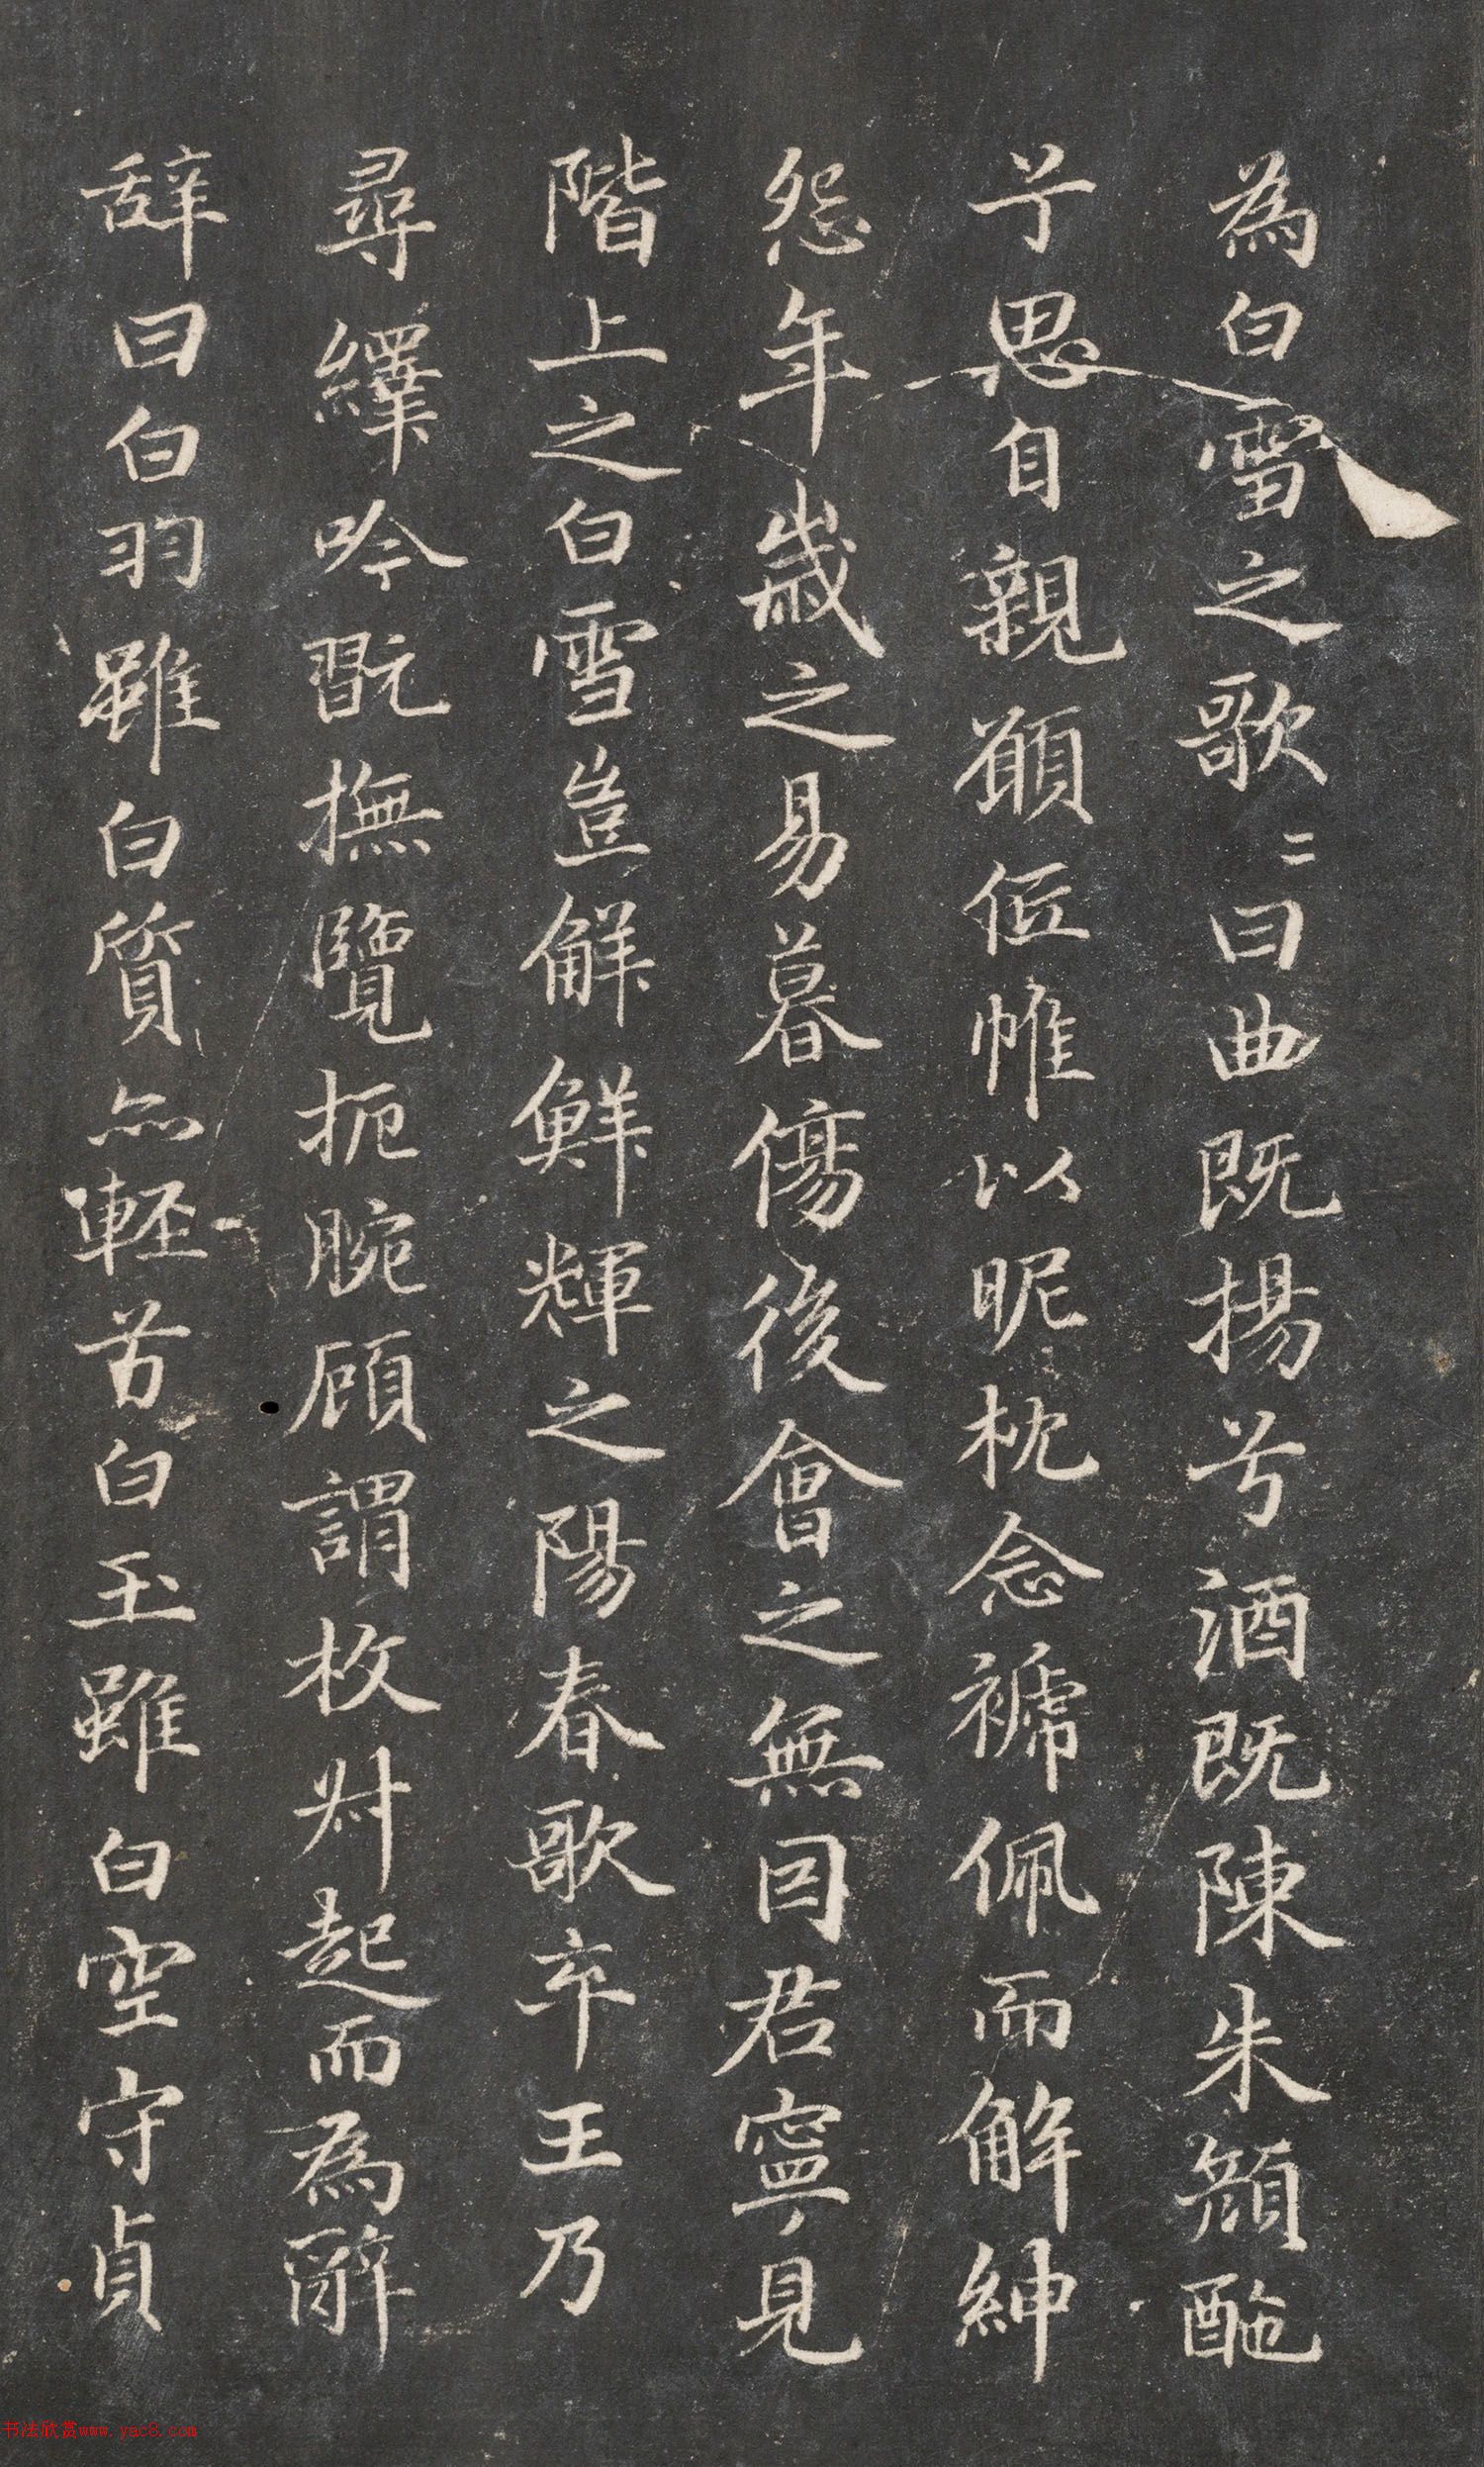 為白雪之歌〻曰曲既揚兮酒既陳朱顏酏
兮思自親願位帷以昵枕念褫佩而解紳
怨年歲之易暮傷後會之無因君寧見
階上之白雪豈鮮鮮輝之陽春歌卒王乃
尋繹吟翫撫覽扼腕顧謂枚叔起而為辭
辭曰白羽雖白質亦輕兮白玉雖白空守貞
书法欣赏www.yac8.com